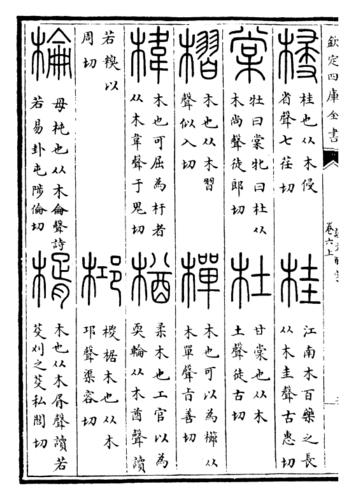 欽定四庫全書
卷六上
梫
桂也从木侵
省聲七荏切
桂
江南木百藥之長
从木圭聲古惠切
棠
牡曰棠牝曰杜从
木尚聲徒郎切
杜
甘棠也从木
土聲徒古切
槢
木也从木習
聲似入切
樿
木也可以為櫛从
木單聲旨善切
椲
木也可屈為杅者
从木韋聲于鬼切
楢
柔木也工官以為
耎輪从木酋聲讀
若糗以
周切
桏
椶椐木也从木
邛聲渠容切
棆
毋杶也从木侖聲詩
若易卦屯陟倫切
楈
木也从木胥聲讀若
芟刈之芟私閭切